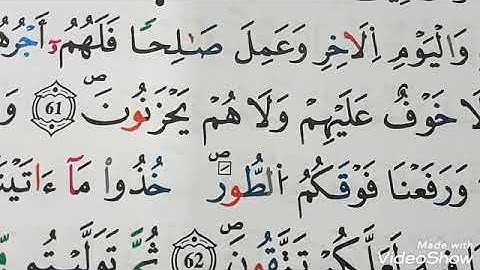 وَالْيَوْمِ اِ۬لَاخِرِ وَعَمِلَ صَٰلِحاً فَلَهُمُۥٓ أَجْرُهُ
خَوْفٌ عَلَيْهِمْ وَلَا هُمْ يَحْزَنُونَۖ 61 وَ
وَرَفَعْنَا فَوْقَكُمُ اُ۬لطُّورَۖ خُذُواْ مَآ ءَاتَيْنَ
لَعَلَّكُمْ تَتَّقُونَۖ 62 ثُمَّ تَوَلَّيْتُم
Made with
VideoShow